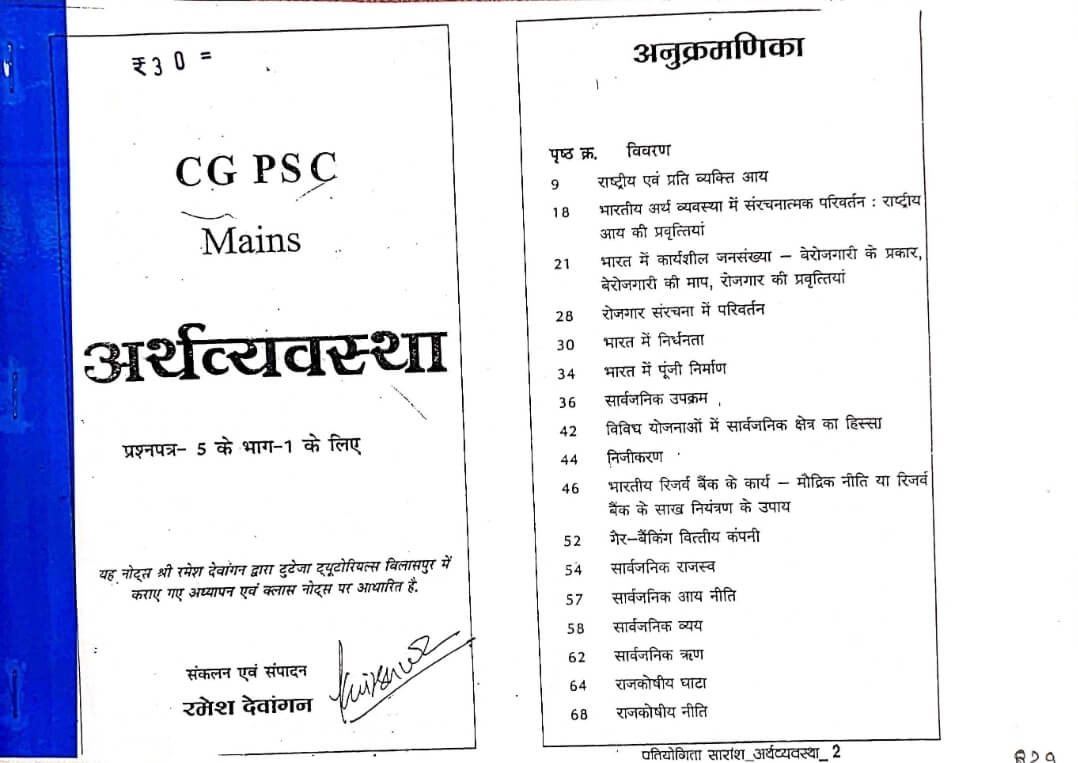 ₹30=
CG PSC
Mains
अर्थव्यवस्था
प्रश्नपत्र- 5 के भाग-1 के लिए
यह नोट्स श्री रमेश देवांगन द्वारा टुटेजा ट्यूटोरियल्स बिलासपुर में
कराए गए अध्यापन एवं क्लास नोट्स पर आधारित है.
संकलन एवं संपादन
रमेश देवांगन
अनुक्रमणिका
पृष्ठ क्र. विवरण
9 राष्ट्रीय एवं प्रति व्यक्ति आय
18 भारतीय अर्थ व्यवस्था में संरचनात्मक परिवर्तन : राष्ट्रीय
आय की प्रवृत्तियां
21 भारत में कार्यशील जनसंख्या – बेरोजगारी के प्रकार,
बेरोजगारी की माप, रोजगार की प्रवृत्तियां
28 रोजगार संरचना में परिवर्तन
30 भारत में निर्धनता
34 भारत में पूंजी निर्माण
36 सार्वजनिक उपक्रम
42 विविध योजनाओं में सार्वजनिक क्षेत्र का हिस्सा
44 निजीकरण
46 भारतीय रिजर्व बैंक के कार्य – मौद्रिक नीति या रिजर्व
बैंक के साख नियंत्रण के उपाय
52 गैर–बैंकिंग वित्तीय कंपनी
54 सार्वजनिक राजस्व
57 सार्वजनिक आय नीति
58 सार्वजनिक व्यय
62 सार्वजनिक ऋण
64 राजकोषीय घाटा
68 राजकोषीय नीति
प्रतियोगिता सारांश_अर्थव्यवस्था_ 2